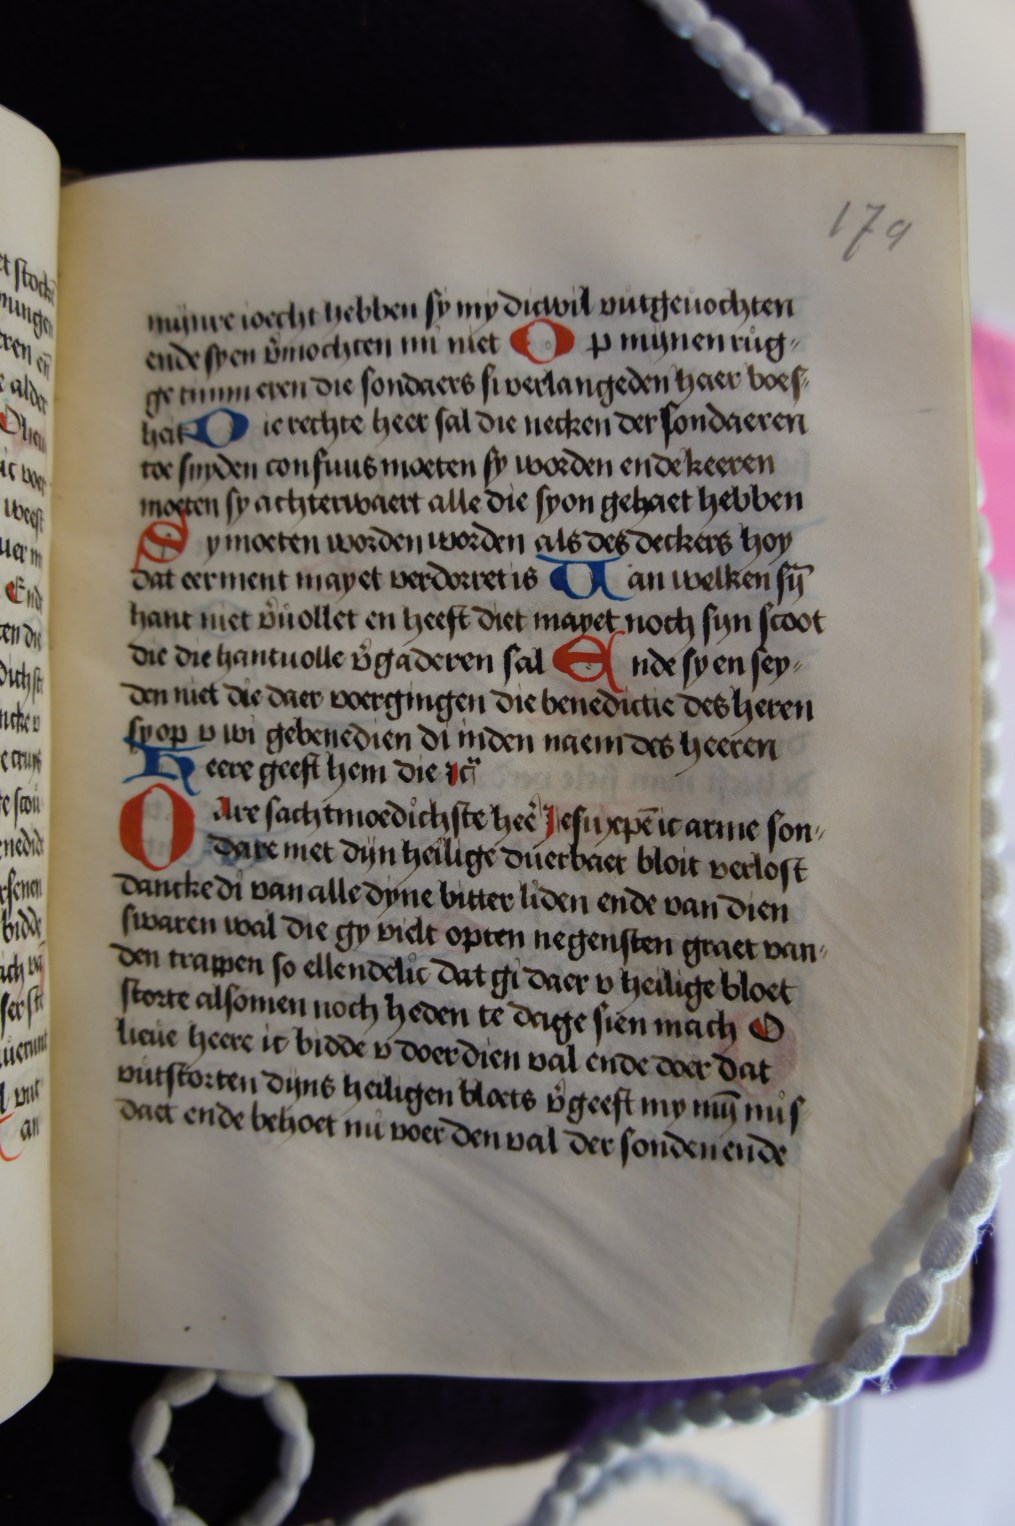 179
mijnre ioecht hebben sy my dicwil uutgeuochten
ende sy en v̉mochten mi niet O p mijnen rug-
ge timmeren die sondaers si verlangeden haer boes-
hat D ie rechte heer sal die necken der sondaeren
toe snyden confuus moeten sy worden ende keeren
moeten sy achterwaert alle die syon gehaet hebben
S y moeten worden worden als des deckers hoy
dat eerment mayet verdorret is U an welken sij̄
hant niet v̉uollet en heeft diet mayet noch sijn scoot
die die hantuolle v̉gaderen sal E nde sy en sey-
den niet die daer voergingen die benedictie des heren
sy op v wi gebenedien di in den naem des heeren
H eere geeft hem die
O Alre sachtmoedichste hee Jesu xp̄e ic arme son-
dare met dijn heilige duerbaer bloit verlost
dancke di van alle dyne bitter liden ende van dien
swaren val die gy vielt opten negensten graet van-
den trappen so ellendelic dat gi daer v heilige bloet
storte alsomen noch heden te dage sien mach O
lieue heere ic bidde v doer dien val ende doer dat
uutstorten dijns heiligen bloets v̉geeft my mij̄ mis-
daet ende behoet mi voer den val der sonden ende